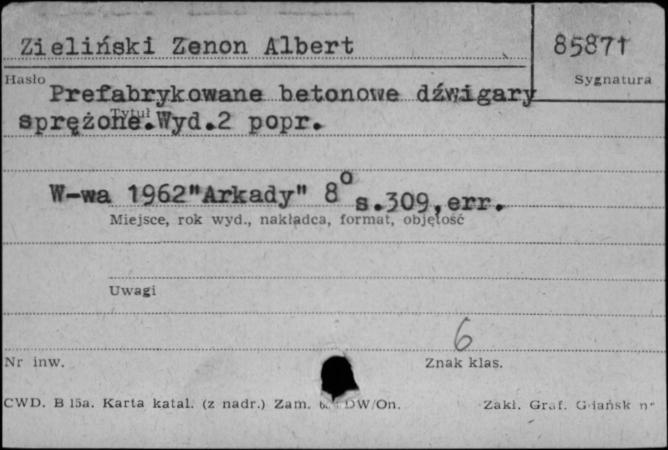 Zieliński Zenon Albert
85871
Hasło
Sygnatura
Prefabrykowane betonowe dźwigary
Tytuł
sprężone.Wyd.2 popr.
W-wa 1962"Arkady" 8° s.309,err.
Miejsce, rok wyd., nakładca, format, objętość
Uwagi
6
Nr inw.
Znak klas.
CWD. B 15a. Karta katal. (z nadr.) Zam. DW/On.
Zakł. Graf. Gdańsk